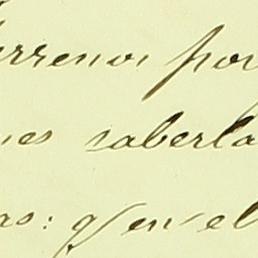 errenos por
nes saberla
as: q/ en el